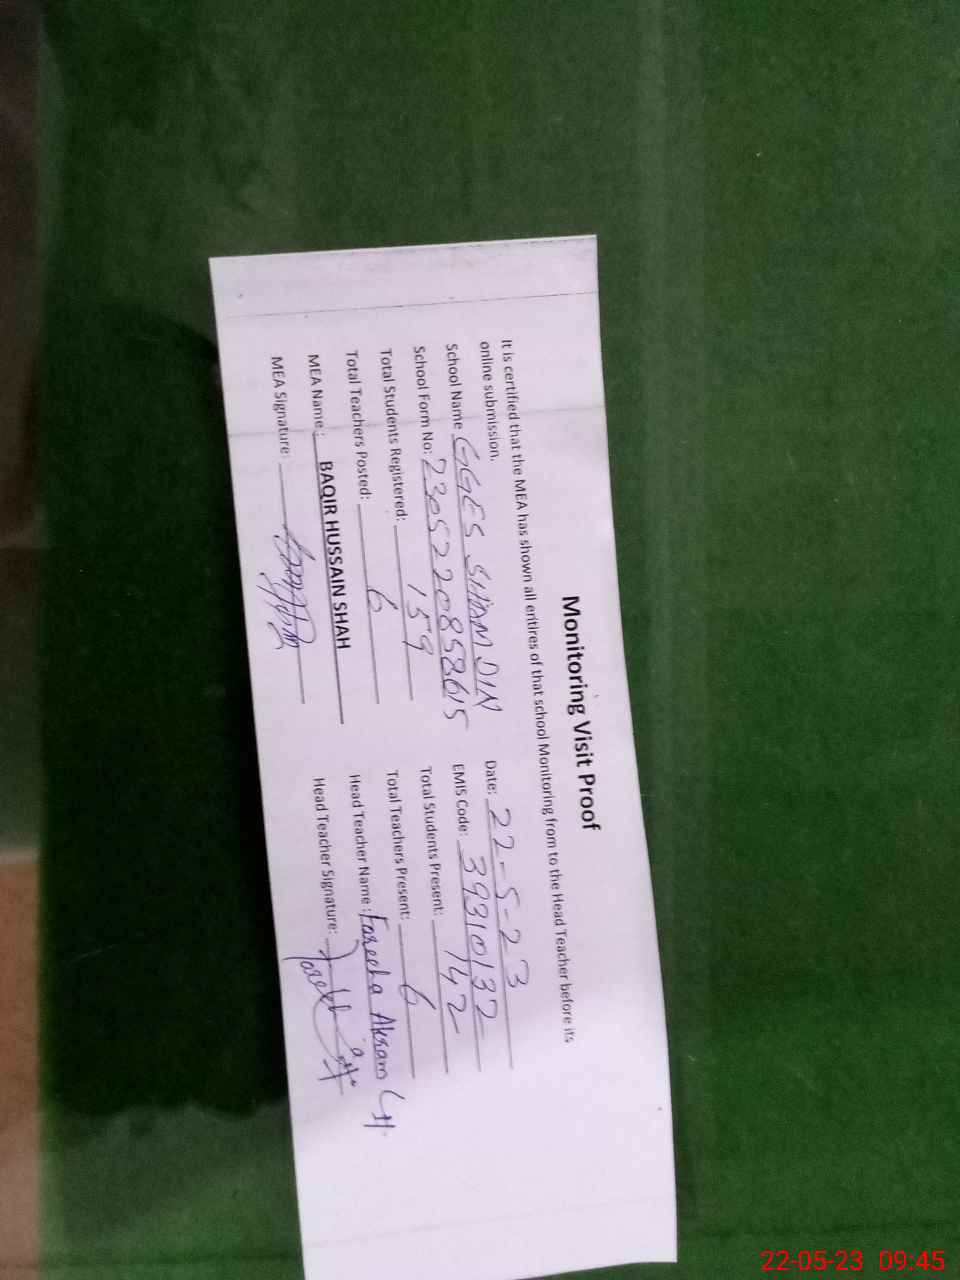 Monitoring Visit Proof
It is certified that the MEA has shown all entires of that school Monitoring from to the Head Teacher before its
online submission.
School Name GGES SHAM DIN Date: 22-5-23
School Form No: 2305220858615 EMIS Code: 39310132
Total Students Registered: 159 Total Students Present: 142
Total Teachers Posted: 6 Total Teachers Present: 6
MEA Name: BAQIR HUSSAIN SHAH Head Teacher Name: Fareeha Akram
MEA Signature: Head Teacher Signature:
22-05-23 09:45